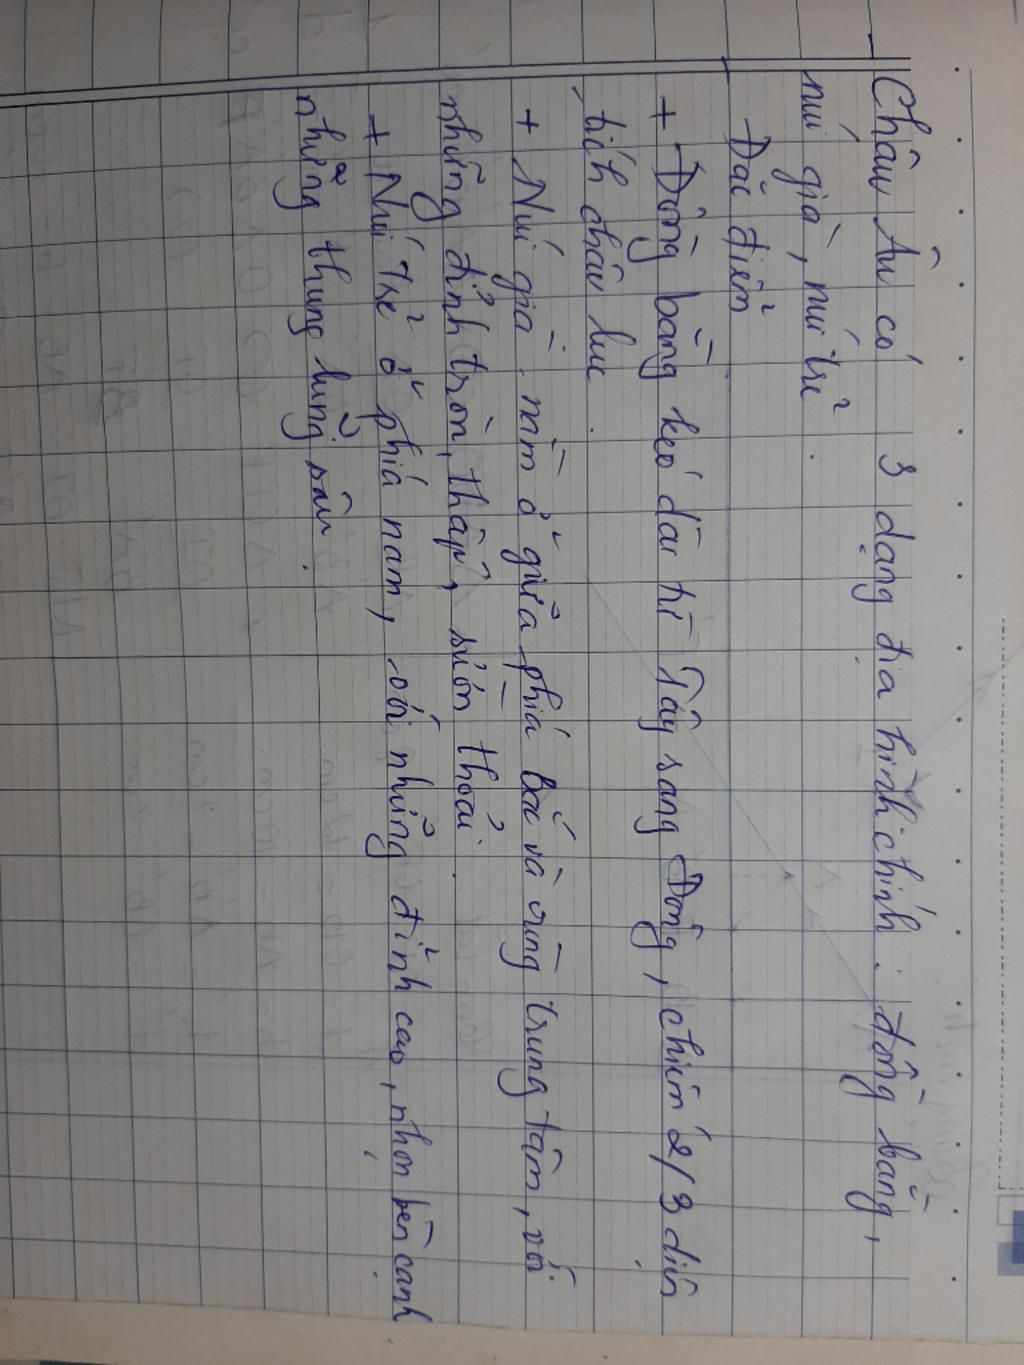 Châu Âu có 3 dạng địa hình chính: đồng bằng,
núi già, núi trẻ.
Đặc điểm
+ Đồng bằng kéo dài từ Tây sang Đông, chiếm 2/3 diện
tích châu lục.
+ Núi già nằm ở giữa phía Bắc và vùng trung tâm, với
những đỉnh tròn, thấp, sườn thoải.
+ Núi trẻ ở phía nam, với những đỉnh cao, nhọn bên cạnh
những thung lũng sâu.